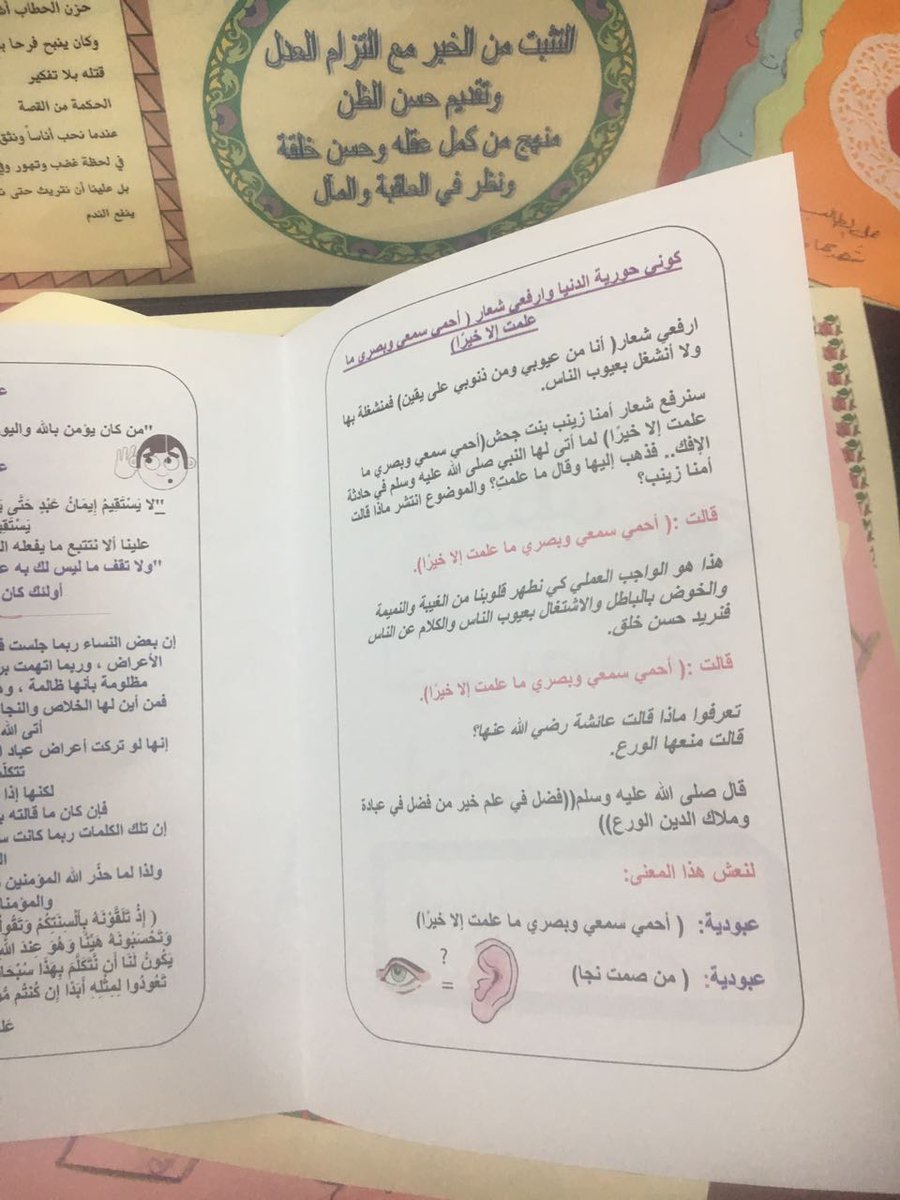 حزن الحطاب
وكان ينبح فرحا
قتله بلا تفكير
الحكمة من القصة
عندما نحب أناساً ونثق
في لحظة غضب وتهور
بل علينا أن نتريث حتى
ينفع الندم
التثبت من الخبر مع التزام العدل
وتقديم حسن الظن
منهج من كمل عقله وحسن خلقة
ونظر في العاقبة والمآل
كوني حورية الدنيا وارفعي شعار ( أحمي سمعي وبصري ما
علمت إلا خيرًا)
ارفعي شعار( أنا من عيوبي ومن ذنوبي على يقين) فمنشغلة بها
ولا أنشغل بعيوب الناس.
سنرفع شعار أمنا زينب بنت جحش(أحمي سمعي وبصري ما
علمت إلا خيرًا) لما أتى لها النبي صلى الله عليه وسلم في حادثة
الإفك.. فذهب إليها وقال ما علمتِ؟ والموضوع انتشر ماذا قالت
أمنا زينب؟
قالت :( أحمي سمعي وبصري ما علمت إلا خيرًا).
هذا هو الواجب العملي كي نطهر قلوبنا من الغيبة والنميمة
والخوض بالباطل والاشتغال بعيوب الناس والكلام عن الناس
فنريد حسن خلق.
قالت :( أحمي سمعي وبصري ما علمت إلا خيرًا).
تعرفوا ماذا قالت عائشة رضي الله عنها؟
قالت منعها الورع.
قال صلى الله عليه وسلم((فضل في علم خير من فضل في عبادة
وملاك الدين الورع))
لنعش هذا المعنى:
عبودية: ( أحمي سمعي وبصري ما علمت إلا خيرًا)
عبودية: ( من صمت نجا)
? =
"من كان يؤمن بالله واليو
"لا يَسْتَقِيمُ إِيمَانُ عَبْدٍ حَتَّى
علينا ألا نتتبع ما يفعله
"ولا تقف ما ليس لك به
أولئك كان
إن بعض النساء ربما جلست
الأعراض ، وربما اتهمت
مظلومة بأنها ظالمة ،
فمن أين لها الخلاص والنجا
أتى الله
إنها لو تركت أعراض عباد
لكنها إذا
فإن كان ما قالته
إن تلك الكلمات ربما كانت
ولذا لما حذّر الله المؤمنين
والمؤمنا
( إِذْ تَلَقَّوْنَهُ بِأَلْسِنَتِكُمْ وَتَقُو
وَتَحْسَبُونَهُ هَيِّنًا وَهُوَ عِندَ اللَّه
يَكُونُ لَنَا أَن نَّتَكَلَّمَ بِهَذَا سُبْحَا
تَعُودُوا لِمِثْلِهِ أَبَدًا إِن كُنتُم